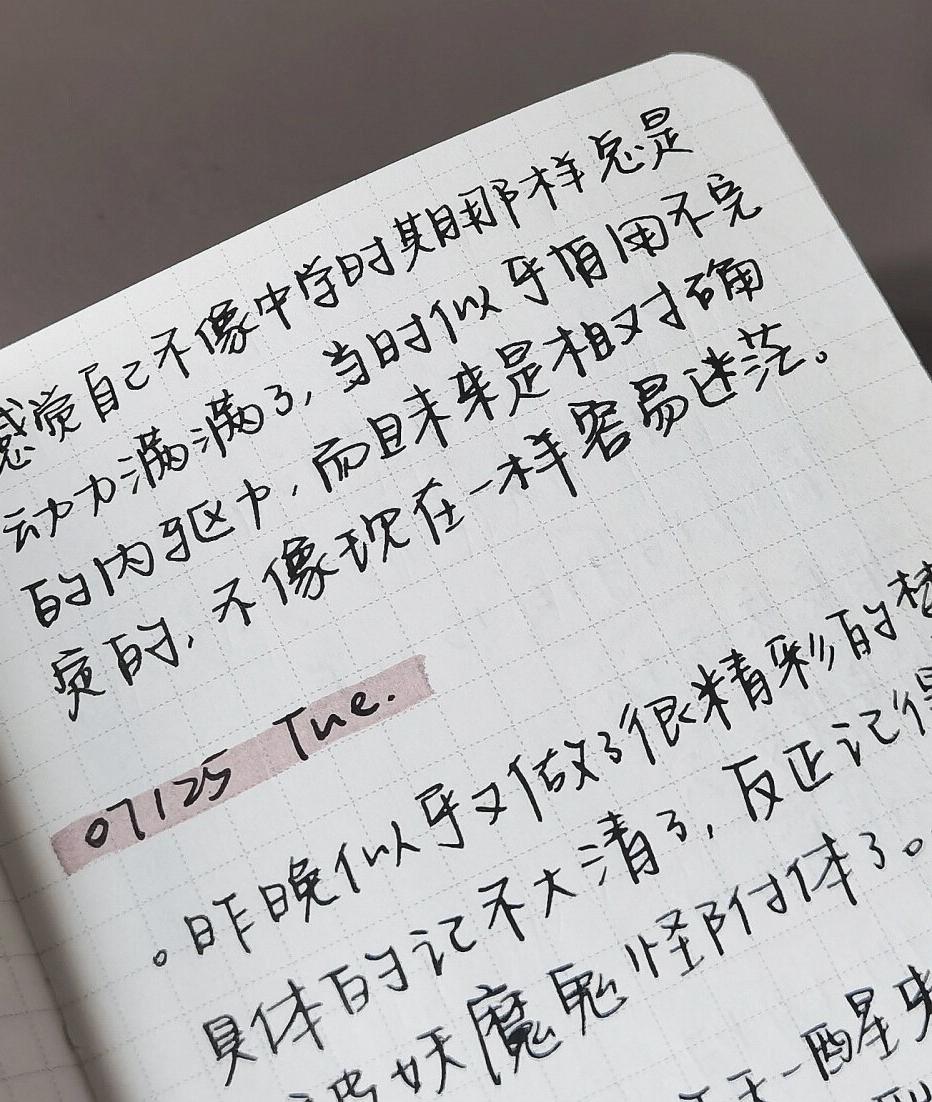 感觉自己不像中学时期那样总是
动力满满了,当时似乎有用不完
的内驱力,而且未来是相对确
定的,不像现在一样容易迷茫。
07125 Tue.
。昨晚似乎又做了很精彩的梦
具体的记不大清了,反正记得
妖魔鬼怪附体了。
一醒来